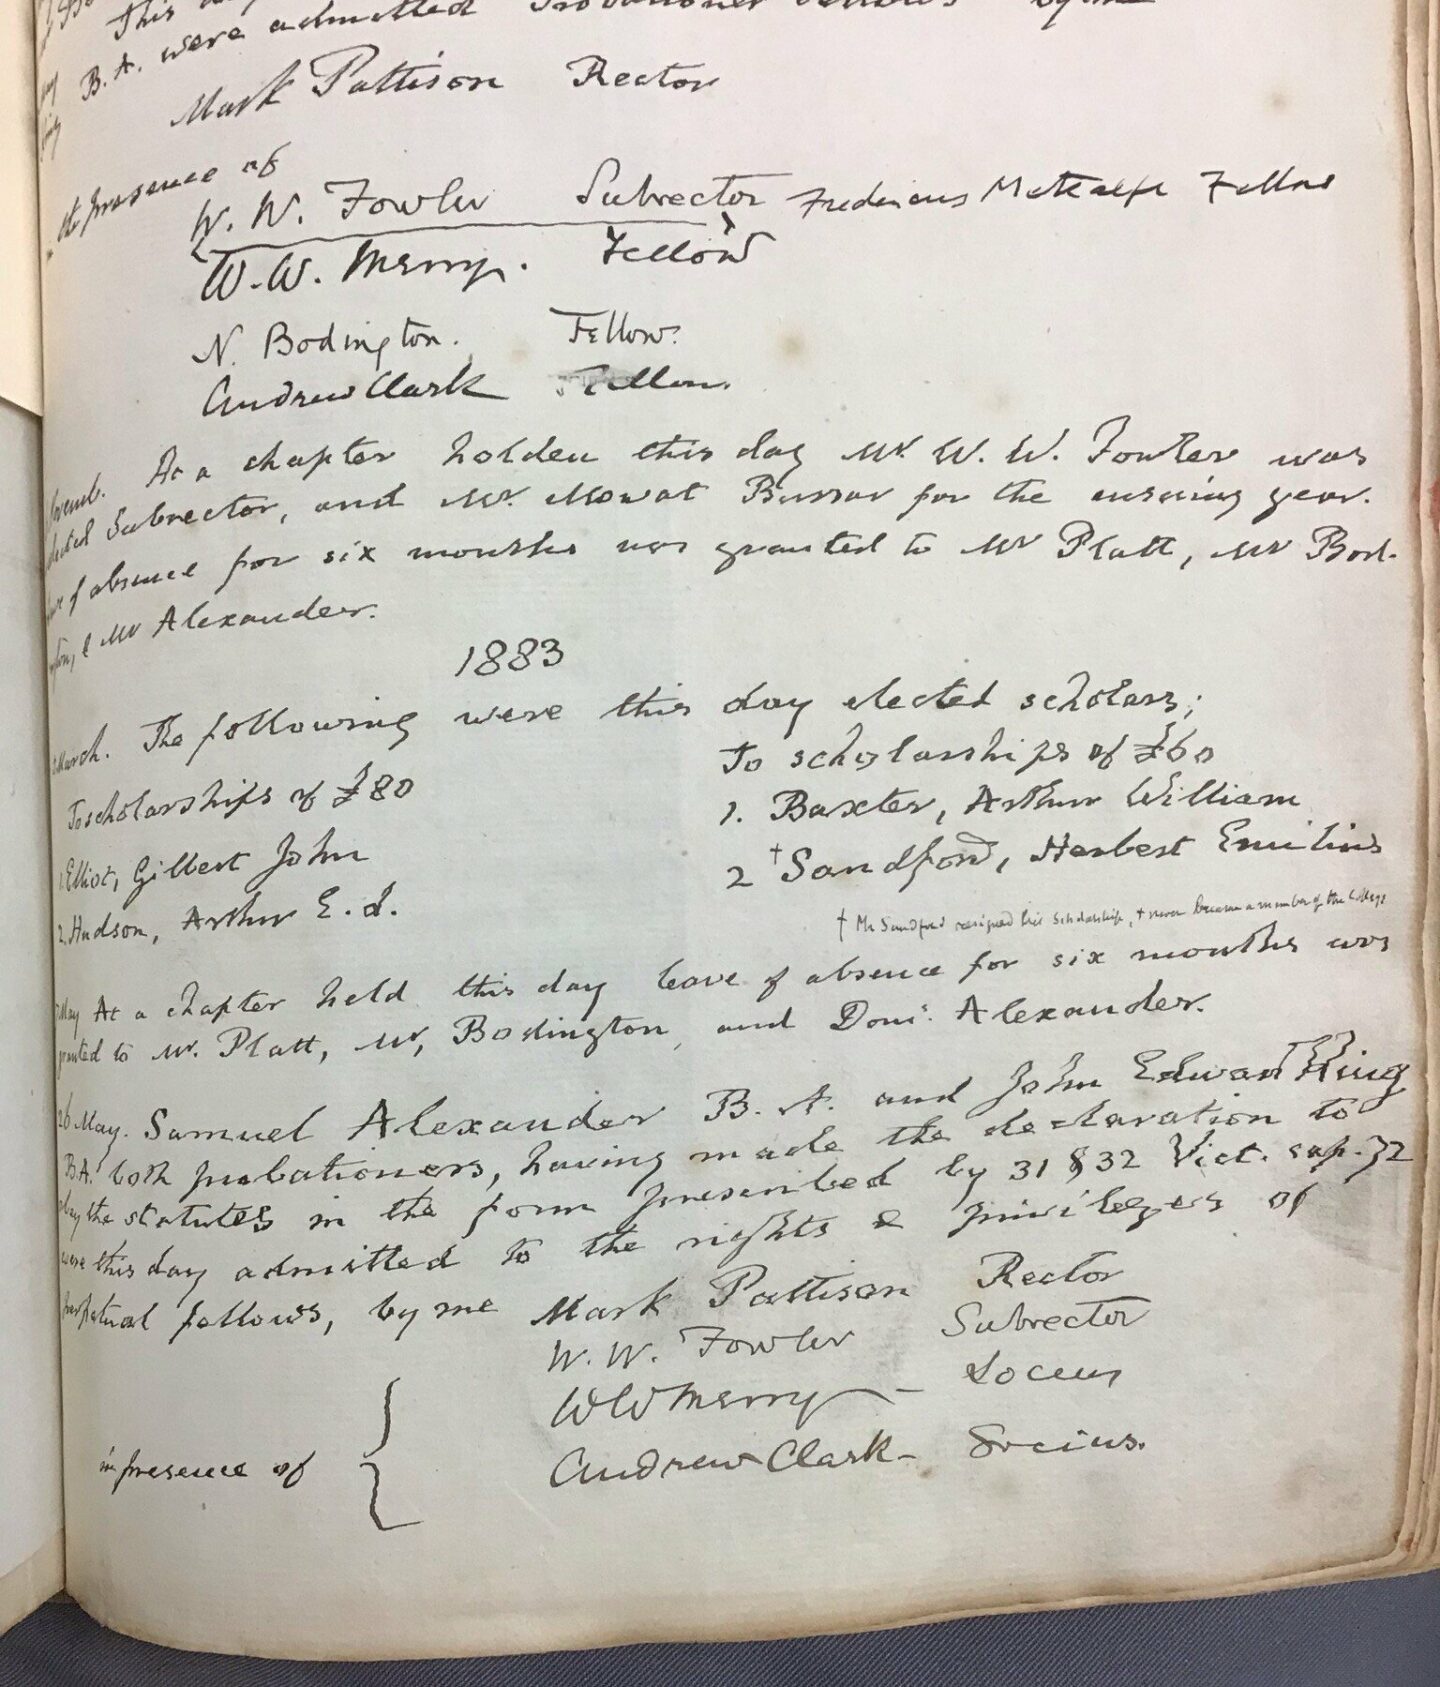 This day
B.A. were admitted Probationer Fellows by me
Mark Pattison Rector
in the presence of
W. W. Fowler Subrector Fredericus Metcalfe Fellow
W. W. Merry. Fellow
N. Bodington. Fellow.
Andrew Clark Fellow.
At a chapter holden this day Mr. W. W. Fowler was
elected Subrector, and Mr. Mowat Bursar for the ensuing year.
of absence for six months was granted to Mr Platt, Mr Bod-
ington, & Mr Alexander.
1883
March. The following were this day elected scholars;
To scholarships of £80
To scholarships of £60
1. Elliot, Gilbert John
1. Baxter, Arthur William
2. Hudson, Arthur E. J.
2 † Sandford, Herbert Emilius
† Mr Sandford resigned his Scholarship, & never became a member of the College
May At a chapter held this day leave of absence for six months was
granted to Mr. Platt, Mr, Bodington, and Doms. Alexander.
26 May. Samuel Alexander B. A. and John Edward King
B.A. both probationers, having made the declaration to
obey the statutes in the form prescribed by 31 & 32 Vict. cap. 72
were this day admitted to the rights & privileges of
perpetual fellows, by me Mark Pattison Rector
W. W. Fowler Subrector
WW Merry Socius
in presence of
Andrew Clark - Socius.